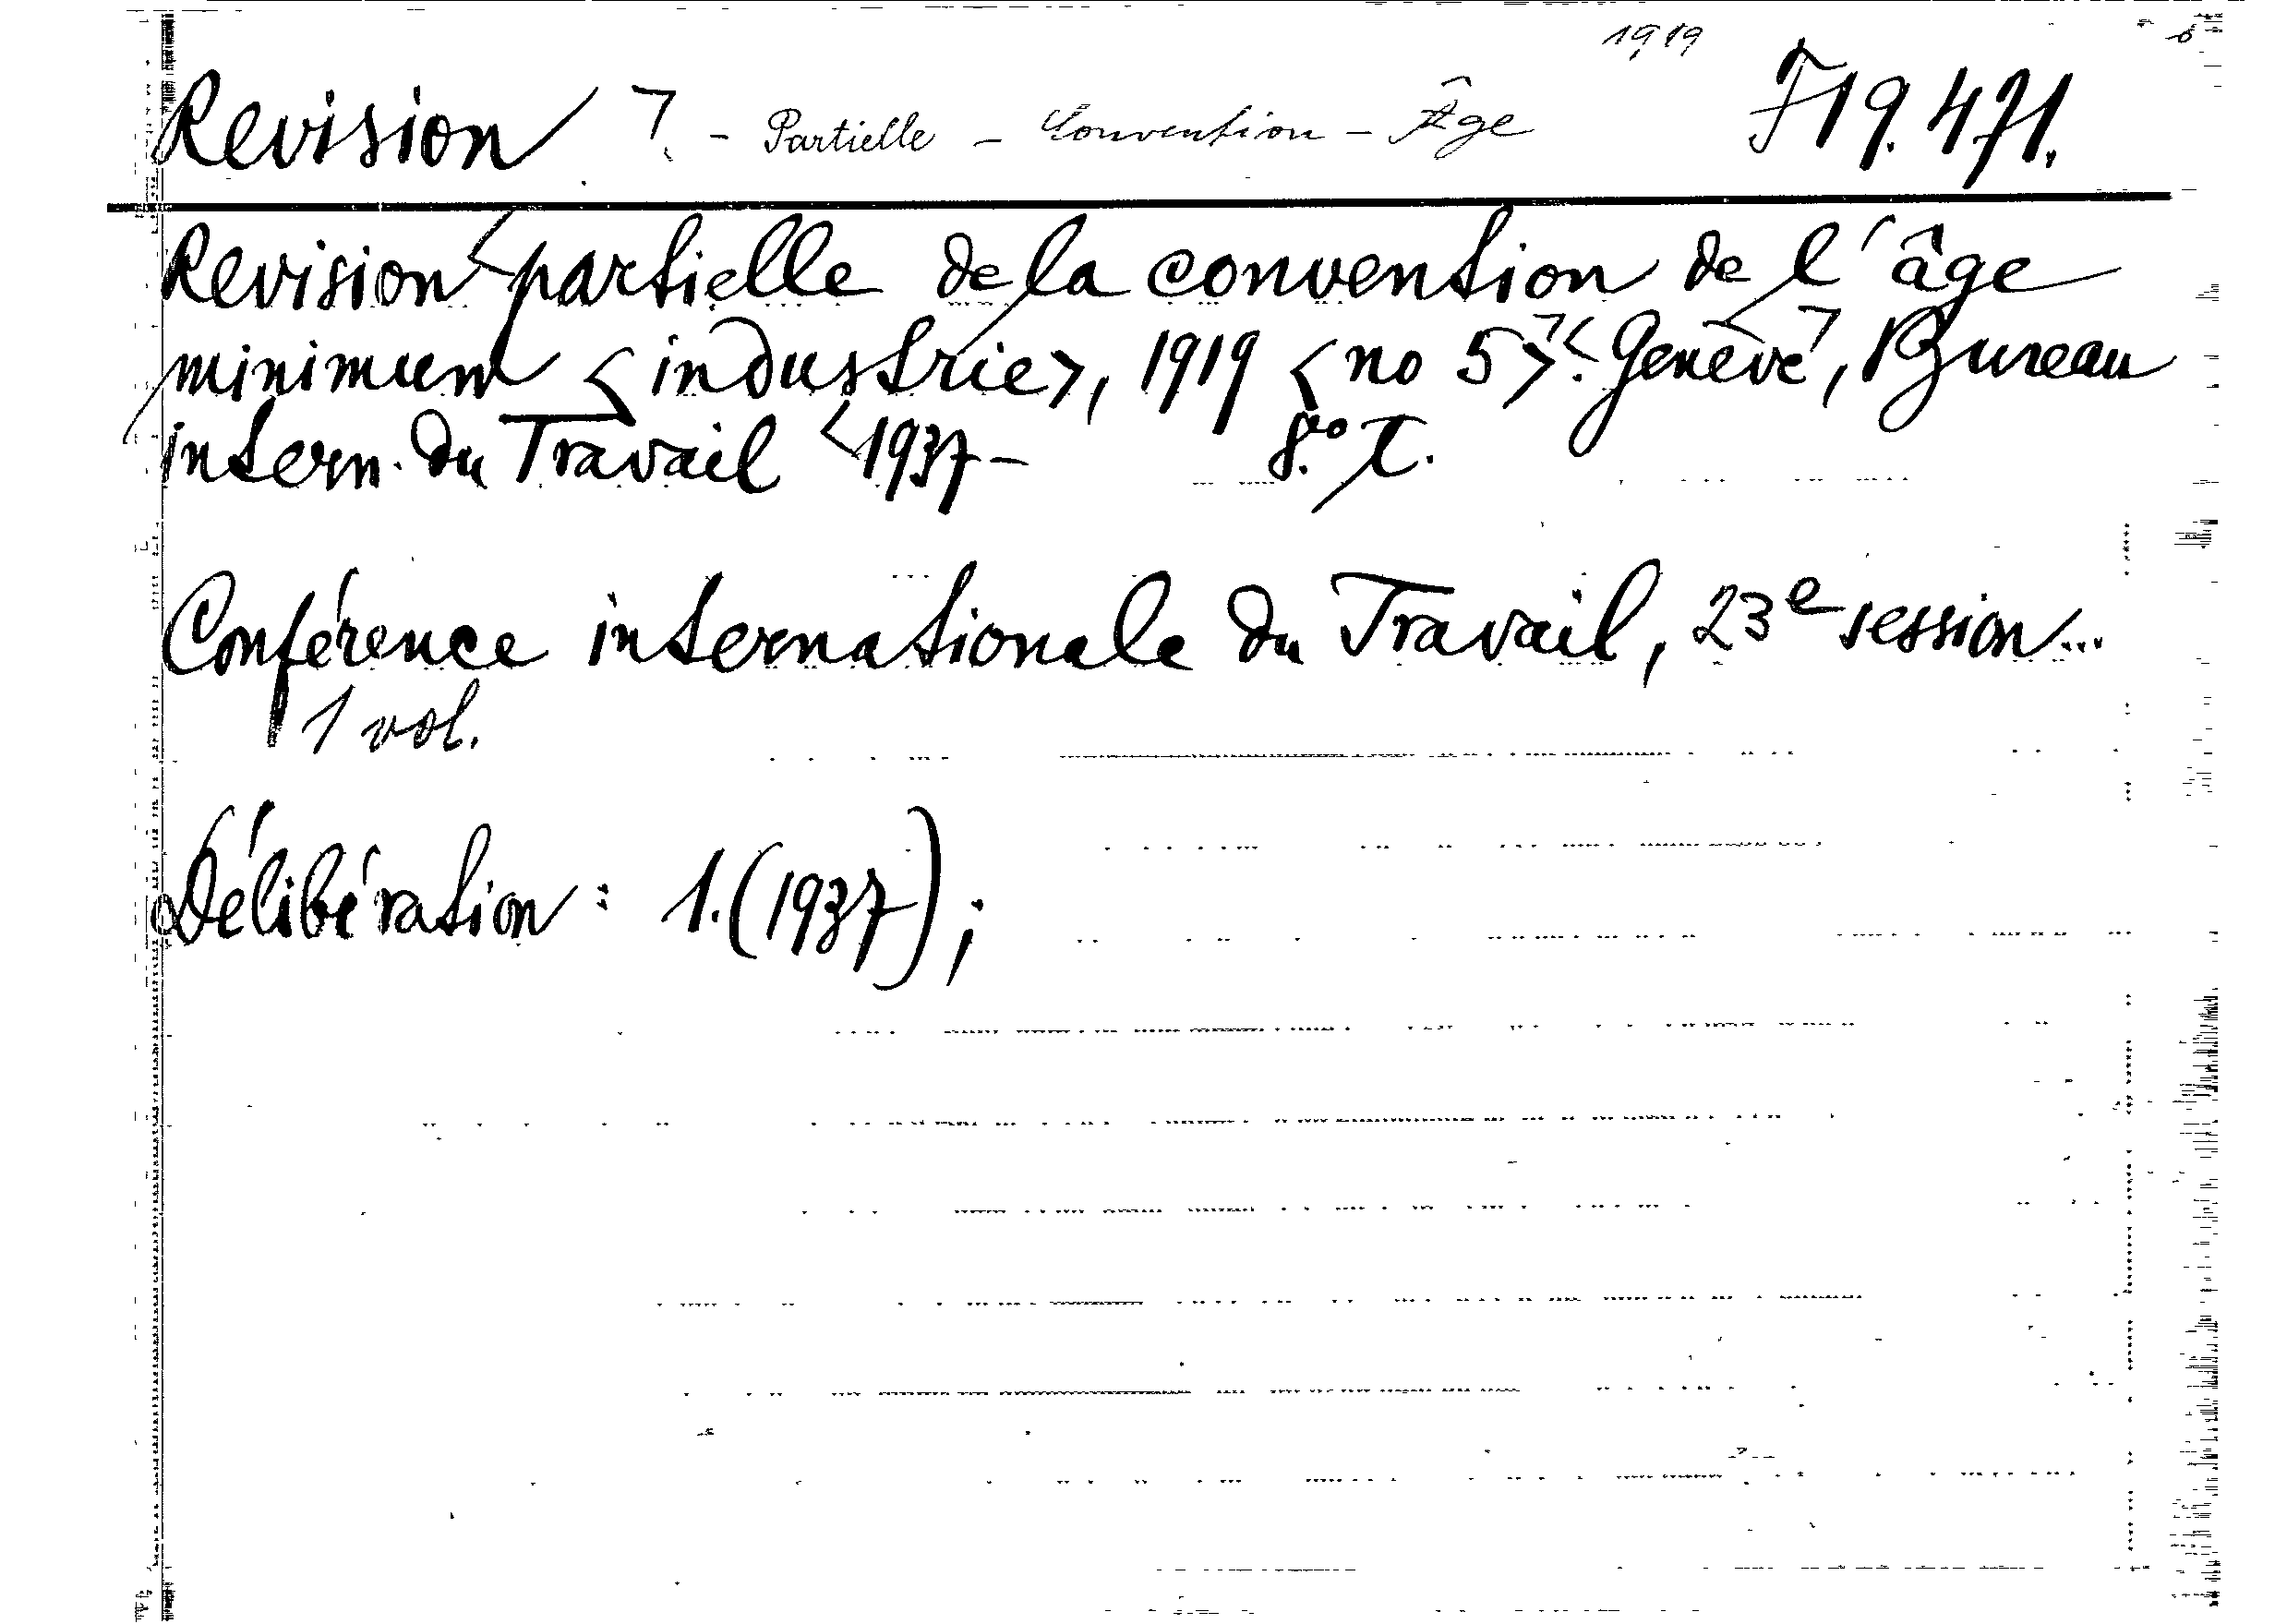 1919
Revision - Partielle - Convention - Âge J 19.471.
Revision partielle de la convention de l'âge
minimum <industrie>, 1919 <no 5>. Genève, Bureau
intern. du Travail 1937- 8.vo T.
Conférence internationale du Travail, 23e session...
1 vol.
Délibération : 1.(1937);